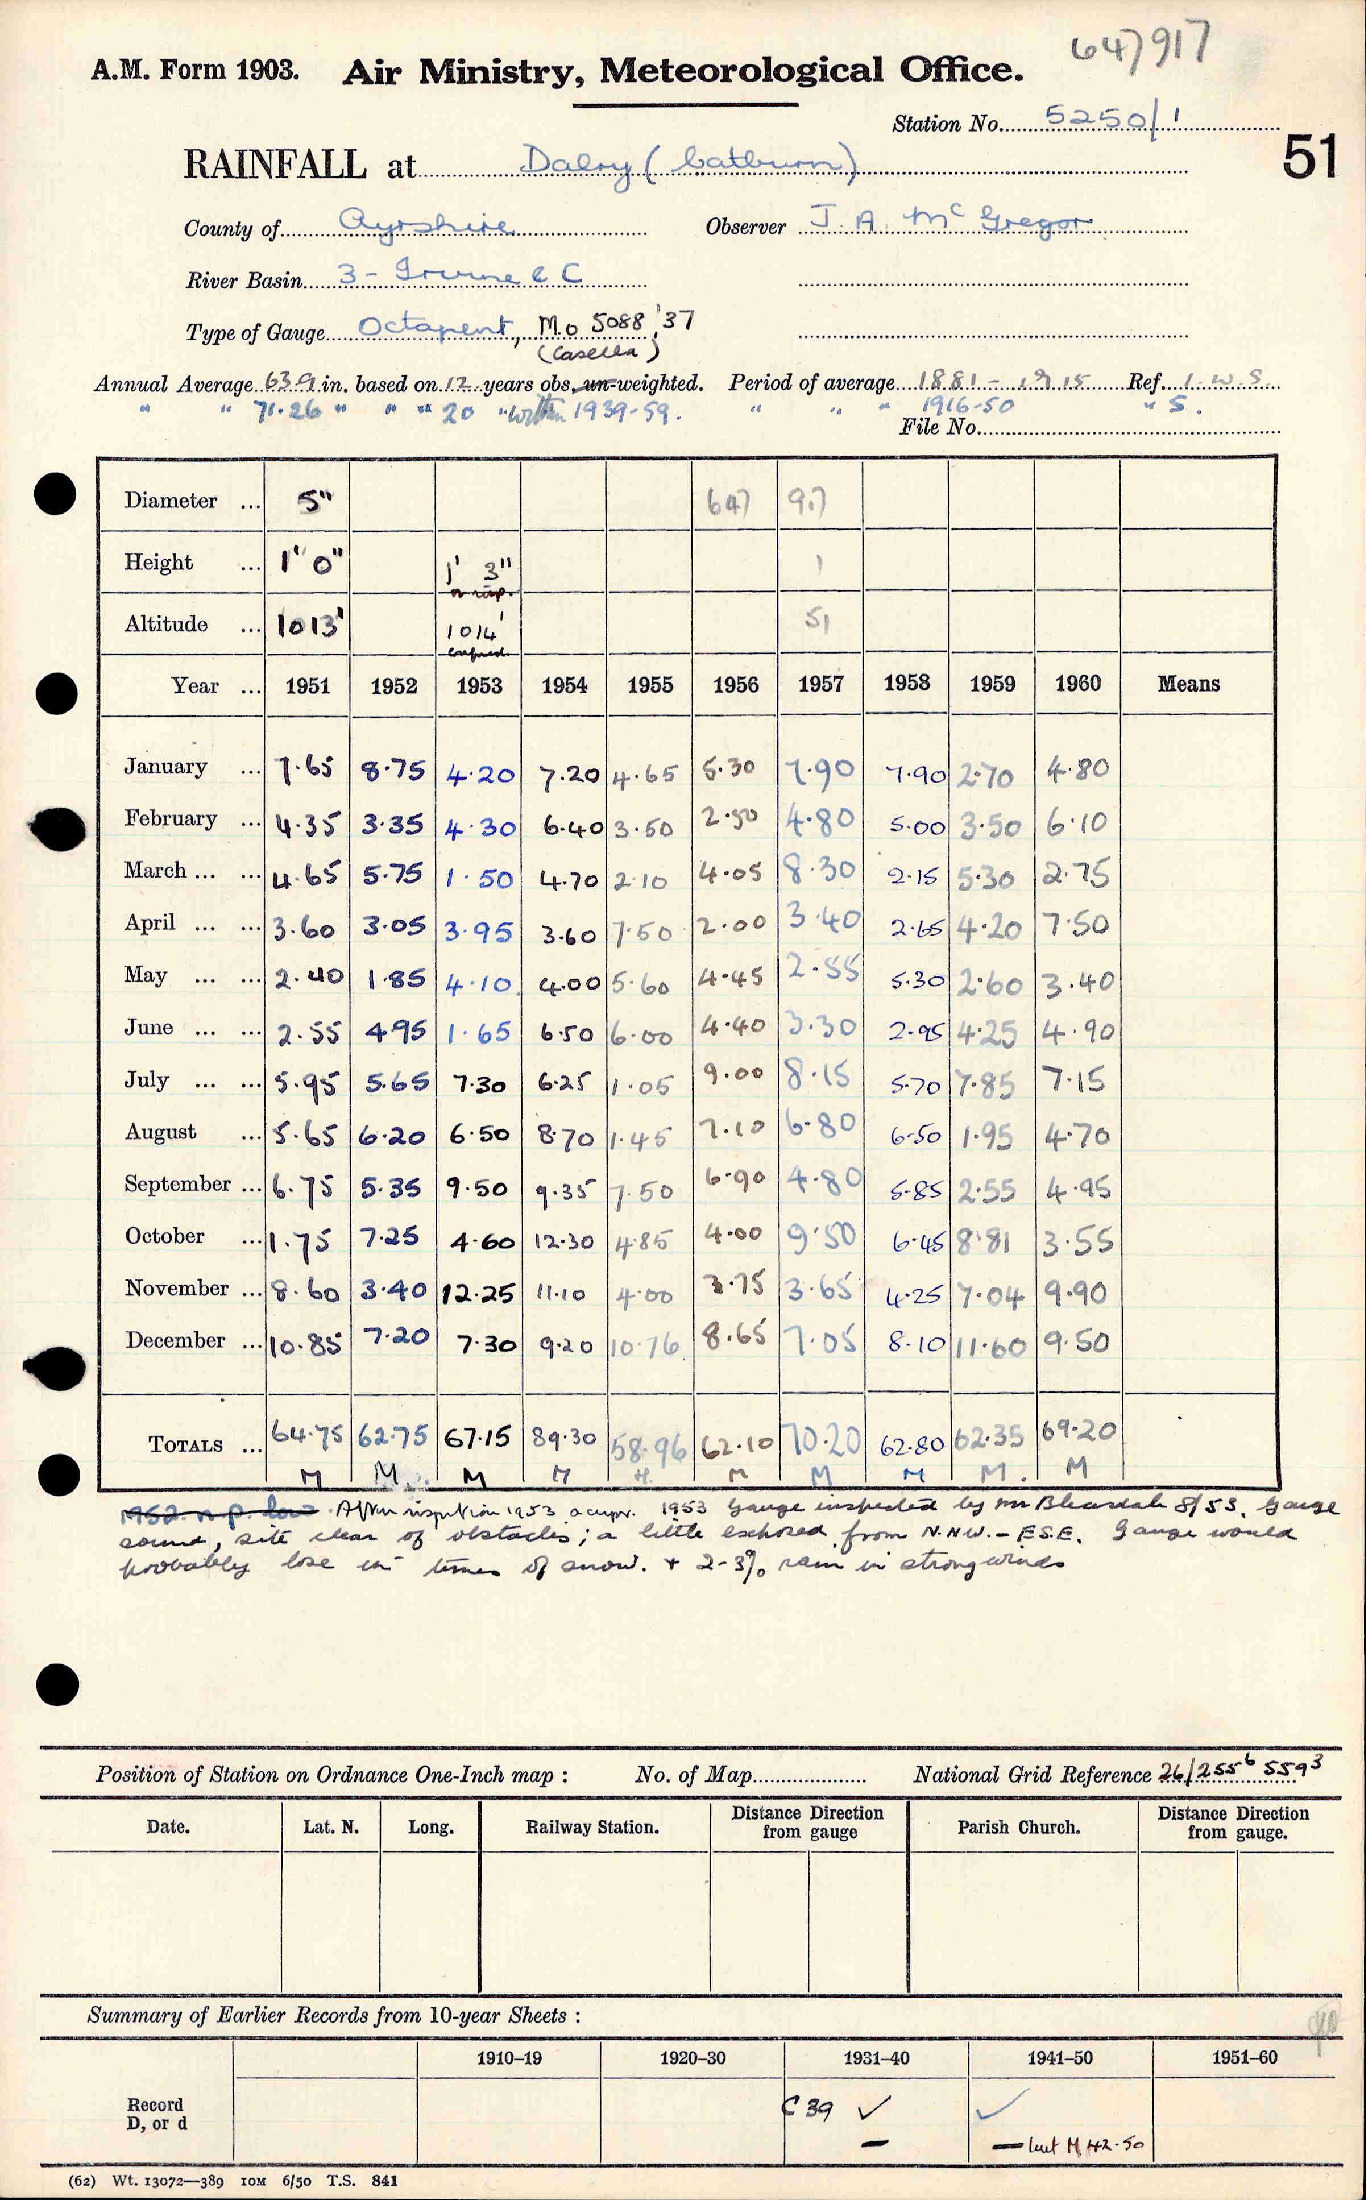 647917
A.M. Form 1903. Air Ministry, Meteorological Office.
Station No. 5250/1
51
RAINFALL at Dalry (Catburn)
County of Ayrshire Observer J. A. McGregor
River Basin 3 - Irvine & C
Type of Gauge Octapent, M.O 5088/37
(Casella)
Annual Average 63.9 in. based on 12 years obs. un-weighted. Period of average 1881-1915 Ref. I.W.S.
" " 71.26 " " " 20 " within 1939-59. " " " 1916-50 " S.
File No.
Diameter ... 5" 647 917
Height ... 1' 0" 1' 3" 1
on insp.
Altitude ... 1013' 1014' 51
confirmed.
Year ... 1951 1952 1953 1954 1955 1956 1957 1958 1959 1960 Means
January ... 7.65 8.75 4.20 7.20 4.65 5.30 7.90 7.90 2.70 4.80
February ... 4.35 3.35 4.30 6.40 3.50 2.50 4.80 5.00 3.50 6.10
March ... ... 4.65 5.75 1.50 4.70 2.10 4.05 8.30 2.15 5.30 2.75
April ... ... 3.60 3.05 3.95 3.60 7.50 2.00 3.40 2.65 4.20 7.50
May ... ... 2.40 1.85 4.10 4.00 5.60 4.45 2.55 5.30 2.60 3.40
June ... ... 2.55 4.95 1.65 6.50 6.00 4.40 3.30 2.95 4.25 4.90
July ... ... 5.95 5.65 7.30 6.25 1.05 9.00 8.15 5.70 7.85 7.15
August ... 5.65 6.20 6.50 8.70 1.45 7.10 6.80 6.50 1.95 4.70
September ... 6.75 5.35 9.50 9.35 7.50 6.90 4.80 5.85 2.55 4.95
October ... 1.75 7.25 4.60 12.30 4.85 4.00 9.50 6.45 8.81 3.55
November ... 8.60 3.40 12.25 11.10 4.00 3.75 3.65 4.25 7.04 9.90
December ... 10.85 7.20 7.30 9.20 10.76 8.65 7.05 8.10 11.60 9.50
TOTALS ... 64.75 62.75 67.15 89.30 58.96 62.10 70.20 62.80 62.35 69.20
M M M M M M M M M M
1952 n.p. low. After inspection 1953 accepr. 1953 Gauge inspected by Mr Bleasdale 8/53. Gauge
sound, site clear of obstacles; a little exposed from N.N.W. - E.S.E. Gauge would
probably lose in times of snow. + 2-3% rain in strong winds
Position of Station on Ordnance One-Inch map : No. of Map National Grid Reference 26/255⁶ 559³
Date. Lat. N. Long. Railway Station. Distance Direction from gauge Parish Church. Distance Direction from gauge.
Summary of Earlier Records from 10-year Sheets :
1910–19 1920–30 1931–40 1941–50 1951–60
Record C 39 ✓ ✓
D, or d — — but M 42-50
(62) Wt. 13072—389 10M 6/50 T.S. 841